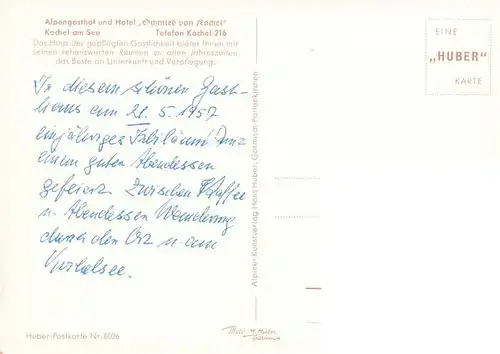 Alpengasthof und Hotel „Schmied von Kochel"
Kochel am See Telefon Kochel 216
Das Haus der gepflegten Gastlichkeit bietet Ihnen mit
seinen sehenswerten Räumen zu allen Jahreszeiten
das Beste an Unterkunft und Verpflegung.
In diesem schönen Gast-
haus am 21.5.1957
einjähriges Jubiläum mit
einem guten Abendessen
gefeiert. Zwischen Kaffee
u. Abendessen Wanderung
durch den Ort u. am
Kochelsee.
Huber-Postkarte Nr. 8026
Alpiner-Kunstverlag Hans Huber, Garmisch-Partenkirchen
EINE
„HUBER"
KARTE
Photo H. Huber
Garmisch